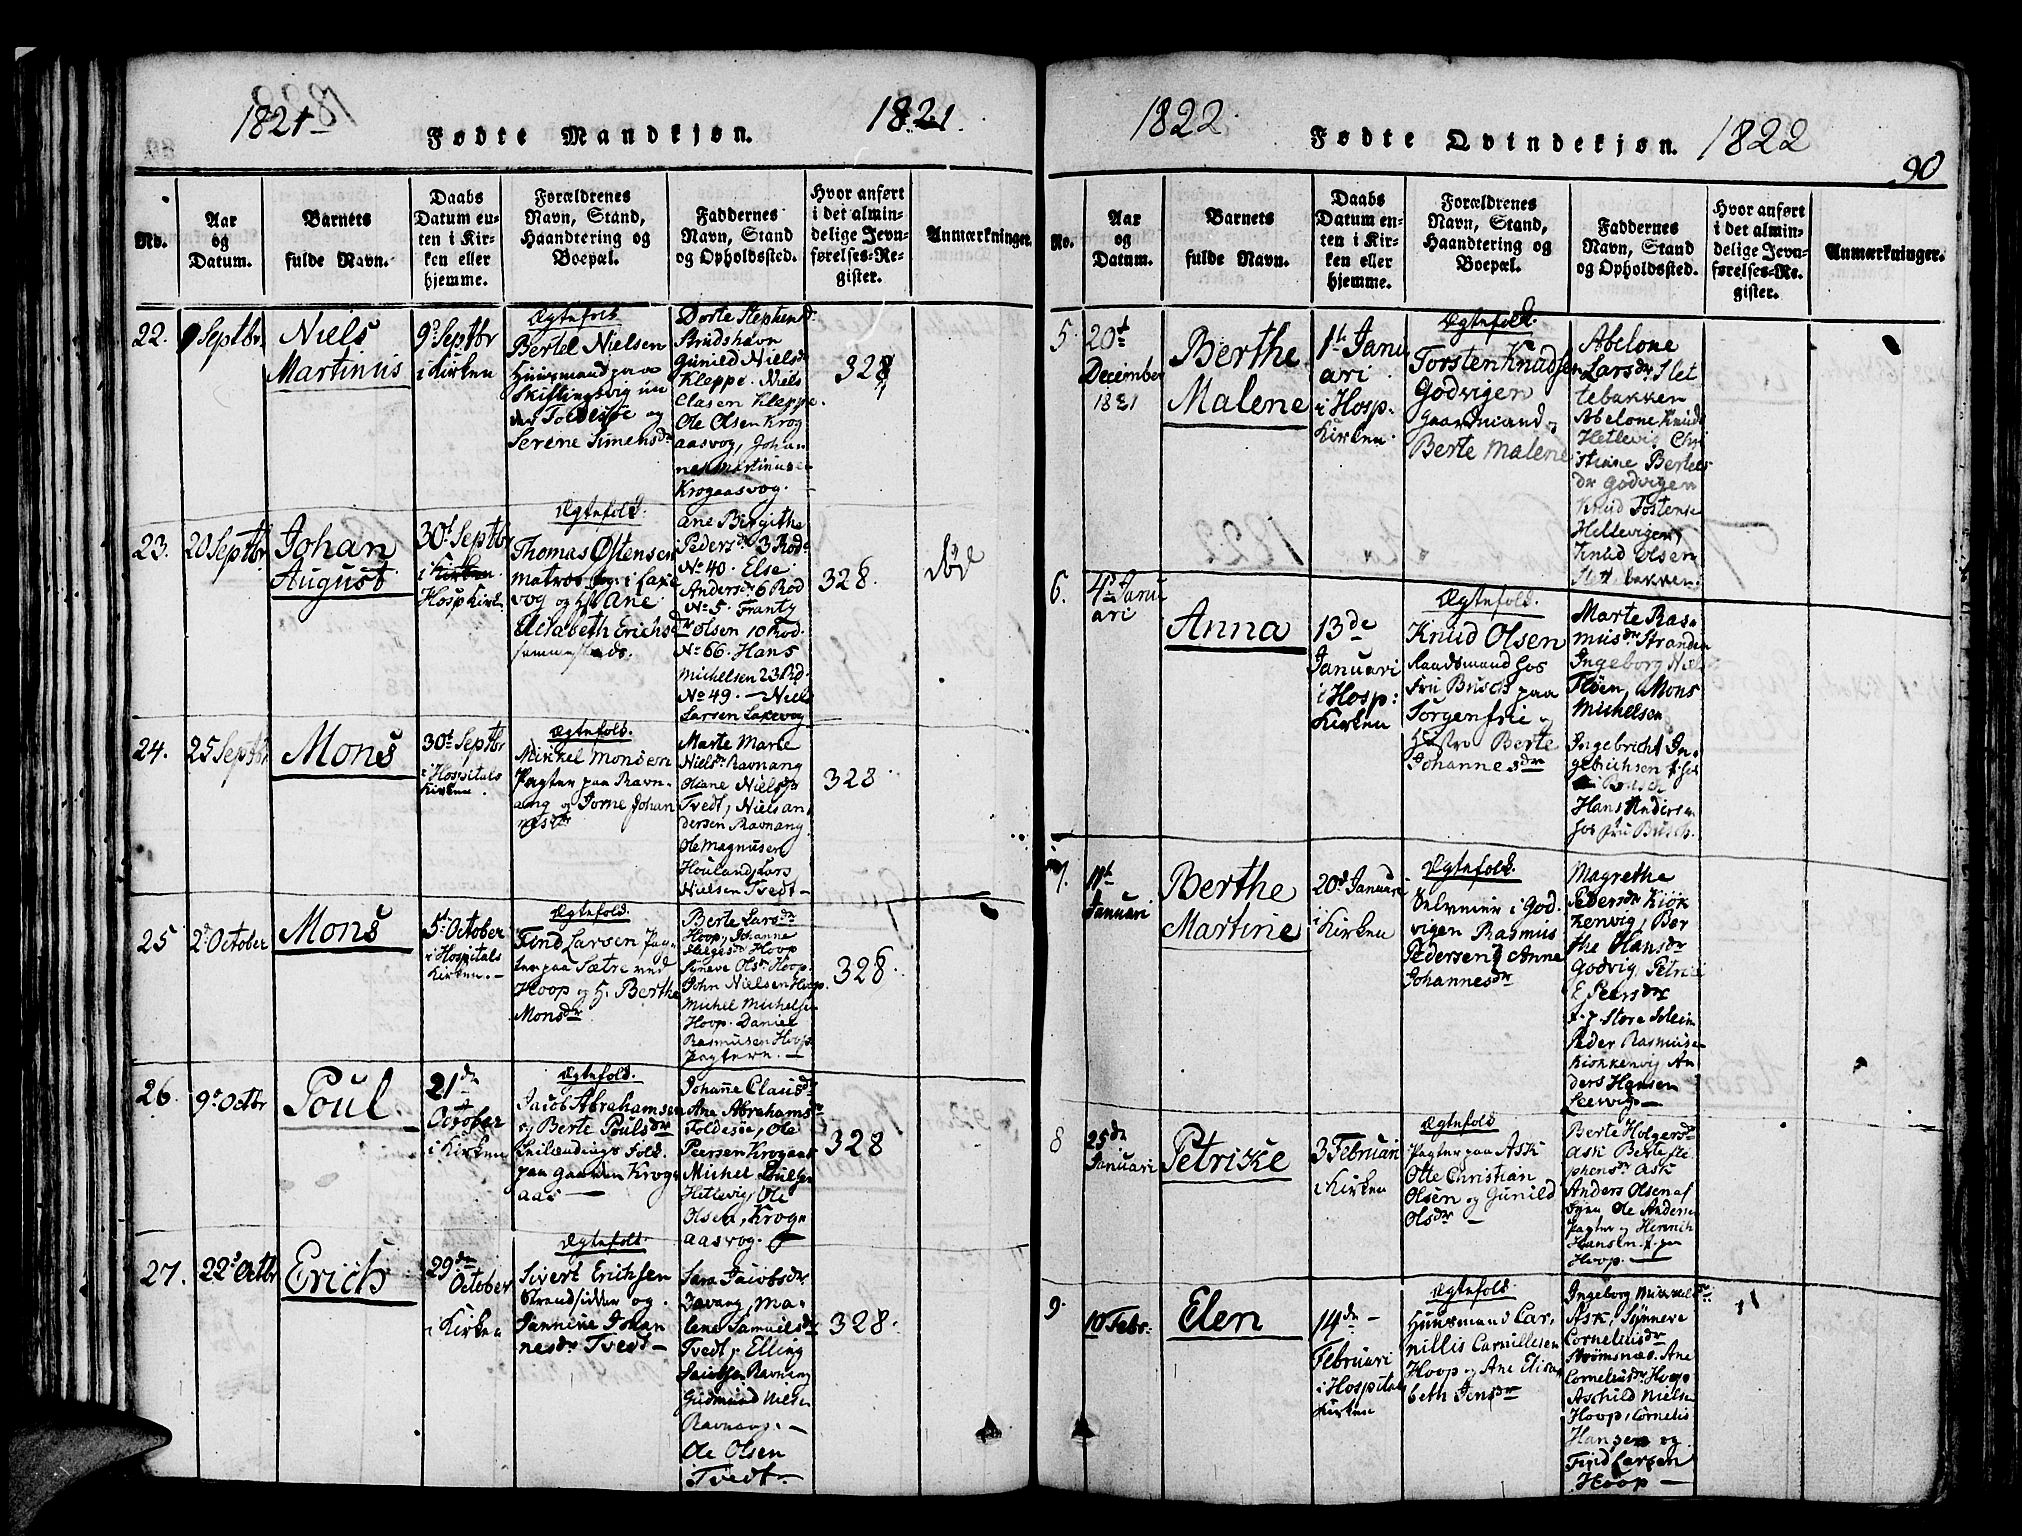 1821
Fødte Mandkjøn.
1821.
No.
Aar
og
Datum.
Barnets
fulde Navn.
Daabs
Datum en-
ten i Kir-
ken eller
hjemme.
Forældrenes
Navn, Stand,
Haandtering og
Boepæl.
Faddernes
Navn, Stand
og Opholdssted.
Hvor anført
i det almin-
delige Jevn-
førelses-Re-
gister.
Anmærkninger.
22.
9 Septbr.
Niels
Martinus
9d Septbr
i Kirken
Ægtefolk
Bertel Nielsen
Huusmand paa
Skiftingsvig un
der Toldesøe og
Serene Simensdr
Dorte Stephensd.
Brudshavn
Gunild Nielsd
Kleppe. Niels
Clasen Kleppe.
Ole Olsen Krog
aasvog, Johan
nes Martinusen
Krogaasvog.
328
23.
20 Septbr
Johan
August
30t Septbr
i Kirken
Hosp Kirk.
Ægtefolk.
Thomas Ostensen
matros i Laxe
vog og H Ane
Elisabeth Erichsd
sammesteds.
Ane Birgithe
Pedersd 3 Rod
No 40. Else
Andersd 6 Rod
No 5. Frants
Olsen 10 Rod.
No 66. Hans
Michelsen 23 Rd.
No 49. - Niels
Larsen Laxevog
328.
død
24.
25 Septbr
Mons
30t Septbr
i Hospitals
Kirken.
Ægtefolk.
Mikkel Monsen
Pagter paa Ravn-
ang og Jorne Johan
nesdr
Marte Marie
Nielsdr Ravnang
Oliane Nielsdr
Tvedt, Niels An
dersen Ravnang.
Ole Magnusen
Houland, Lars
Nielsen Tvedt -
328
25
2d October
Mons
5t October
i Hospitals
Kirken. -
Ægtefold.
Find Larsen Pag-
ter paa Sætre ved
Hoop og H. Berthe
Monsdr
Berte Larsdr
Hoop, Johanne
Helgesd Hoop
Syneve Olsdr Hoop.
John Nielsen Hoop.
Michel Michelsen
Hoop. Daniel
Rasmusen Hoop
Pagtern. -
328
26.
9d Octbr
Poul.
21de
October
i Kirken
Ægtefold.
Jacob Abrahamsen
og Berte Poulsdr
Skilændings folk
paa Gaarden Krog-
aas -
Johanne Clausd
Ane Abrahamsdr
Toldesøe, Ole
Peersen Krogaas
Michel
Hetlevig, Ole
Olsen, Krog-
aasvog.
328
27.
22d Octbr
Erich
29de
October
i Kirken
Ægtefolk.
Sivert Erichsen
Strandsidder og
Jannine Johan
nesdr Tvedt -
Sara Jacobsdr
Ravang, Ma-
lene Samuelsdr
Tvedt, Elling
Jacobsen Ravnang
Gudmund Nilsen
Ravnang. -
Ole Olsen
Tvedt -
328.
1822
Fødte Qvindekjøn.
1822
90
No.
Aar
og
Datum.
Barnets
fulde Navn.
Daabs
Datum en-
ten i Kir-
ken eller
hjemme.
Forældrenes
Navn, Stand,
Haandtering og
Boepæl.
Faddernes
Navn, Stand
og Opholdssted.
Hvor anført
i det almin-
delige Jevn-
førelses-Re-
gister.
Anmærkninger.
5.
20t
December
1821
Berthe
Malene
1t Janu
ari
i Hosp-
Kirken.
Ægtefolk.
Torsten Knudsen
Godvigen
Gaardmand
Berte Malene
Abelone
Larsdr Slet
tebakken
Abelone Knuds
Hetlevig Chri
stiane Bertels
dr Godvigen
Knud Tostense
Hellevigen,
Knud Olsen
Slettebakken.
6.
4de Janu
ari
Anna
13de
Januari
i Hosp:
Kirken
Ægtefold.
Knud Olsen
Raadsmand hos
Fru Busch paa
Sorgenfrie og
Hustro Berte
Johannesdr
Marte Ras-
musdr Stranden
Ingeborg Niels
Fløen, Mons
Michelsen
Ingebricht In-
gebrichsen hos
Busch
Hans Andersen
hos fru Busch.
7.
11t
Januari
Berthe
Martine
20d Januari
i Kirken
Ægtefolk.
Selveier i God
vigen Rasmus
Pedersen og Anne
Johannesdr
Magrethe
Pedersdr Kiøk
kenvig, Ber
the Hansdr
Godvig Petri
E Peersdr
t. j. Store
Peder Rasmuse
Kiøkkenvig An
ders Hansen
Leervig -
8
25de
Januari
Petrike
3 Februari
i Kirken
Ægtefold
Pagter paa Ask
Otte Christian
Olsen og Gunild
Olsdr -
Berte Holgersdr
Ask Berte Ste
phensdr Ask
Anders Olsen af
Ole Andersen
Pagter og Henrich
Hansen t. paa
Hoop. -
9.
10 Febr.
Elen
14de -
Februari
i Hospital
Kirken
Ægtefold
Huusmand Cor,
nillis Cornillesen
Hoop og Ane Elisa-
beth Jensdr
Ingeborg Mikkelsdr
Ask, Synneve
Cornelisdr
Strømsnæs. Ane
Cornelisdr Hoop
Aschild Nielsen
Hoop, Cornelis
Hansen og
Find Larsen
Hoop -